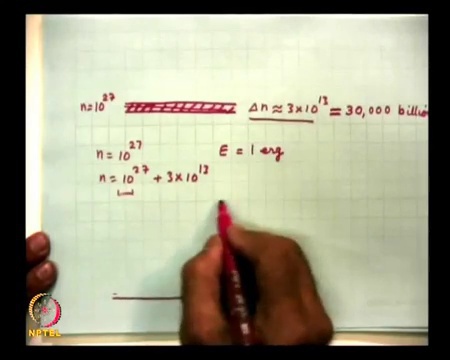 n=10²⁷ Δn ≈ 3×10¹³ = 30,000 billion
n = 10²⁷ E = 1 erg
n = 10²⁷ + 3×10¹³
NPTEL